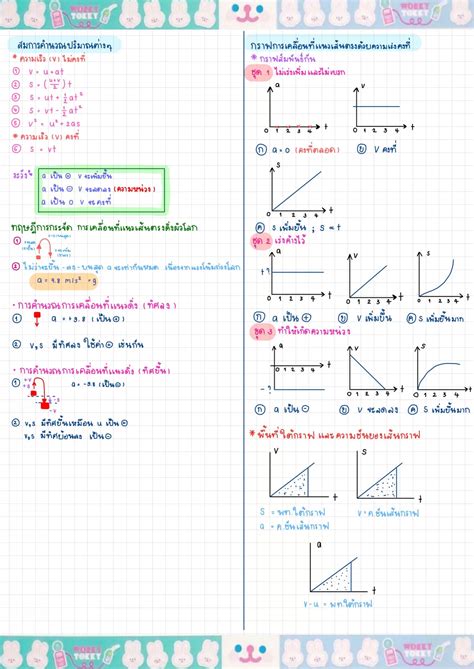 สมการคำนวณปริมาณต่างๆ
* ความเร็ว (v) ไม่คงที่
① v = u+at
② s = (u+v/2)t
③ s = ut + ½at²
④ s = vt - ½at²
⑤ v² = u²+2as
* ความเร็ว (v) คงที่
⑥ s = vt
ระวัง
a เป็น ⊕ v จะเพิ่มขึ้น
a เป็น ⊖ v จะลดลง (ความหน่วง)
a เป็น 0 v จะคงที่
①
a = 9.8 m/s² = g
• การคำนวณการเคลื่อนที่แนวดิ่ง (ทิศลง)
① a = +9.8 (เป็น ⊕)
② v,s มีทิศลง ใช้ค่า ⊕ เช่นกัน
• การคำนวณการเคลื่อนที่แนวดิ่ง (ทิศขึ้น)
① a = -9.8 (เป็น ⊖)
② v,s มีทิศขึ้นเหมือน u เป็น ⊕
v,s มีทิศย้อนลง เป็น ⊖
กราฟการเคลื่อนที่แนวเส้นตรงด้วยความเร่งคงที่
* กราฟสัมพันธ์กัน
ชุด 1 ไม่เร่งเพิ่มและไม่เบรก
a
0 1 2 3 4 t
v
0 1 2 3 4 t
ก a = 0 (คงที่ตลอด) ข v คงที่
s
0 1 2 3 4 t
ค s เพิ่มขึ้น ; s ∝ t
ชุด 2 เร่งค้างไว้
a
+?
0 1 2 3 4 t
v
0 1 2 3 4 t
s
0 1 2 3 4 t
ก a เป็น ⊕ ข v เพิ่มขึ้น ค s เพิ่มขึ้นมาก
ชุด 3 ทำให้เกิดความหน่วง
a
-?
t
v
0 1 2 3 4 t
s
0 1 2 3 4 t
ก a เป็น ⊖ ข v จะลดลง ค s เพิ่มขึ้น
* พื้นที่ใต้กราฟ และความชันของเส้นกราฟ
v
t
s
t
s = พท.ใต้กราฟ
v = ค.ชันเส้นกราฟ
a = ค.ชันเส้นกราฟ
a
t
v-u = พท.ใต้กราฟ